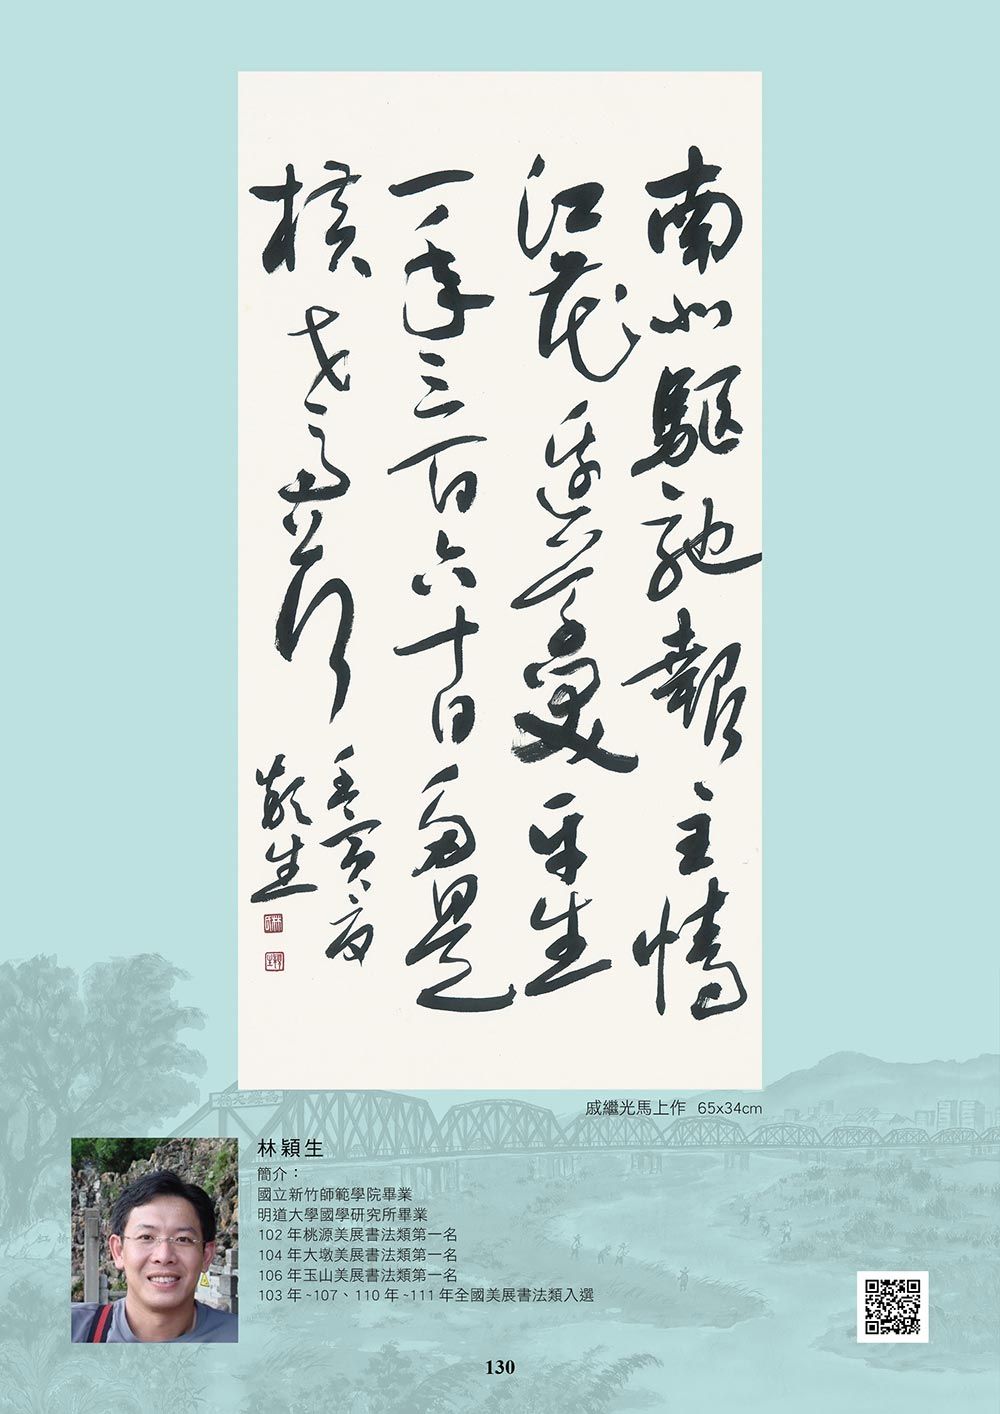 南北驅馳報主情
江花邊草笑平生
一年三百六十日多是
橫戈馬上行
壬寅夏
穎生
戚繼光馬上作 65x34cm
林穎生
簡介：
國立新竹師範學院畢業
明道大學國學研究所畢業
102 年桃源美展書法類第一名
104 年大墩美展書法類第一名
106 年玉山美展書法類第一名
103 年~107、110 年~111 年全國美展書法類入選
130